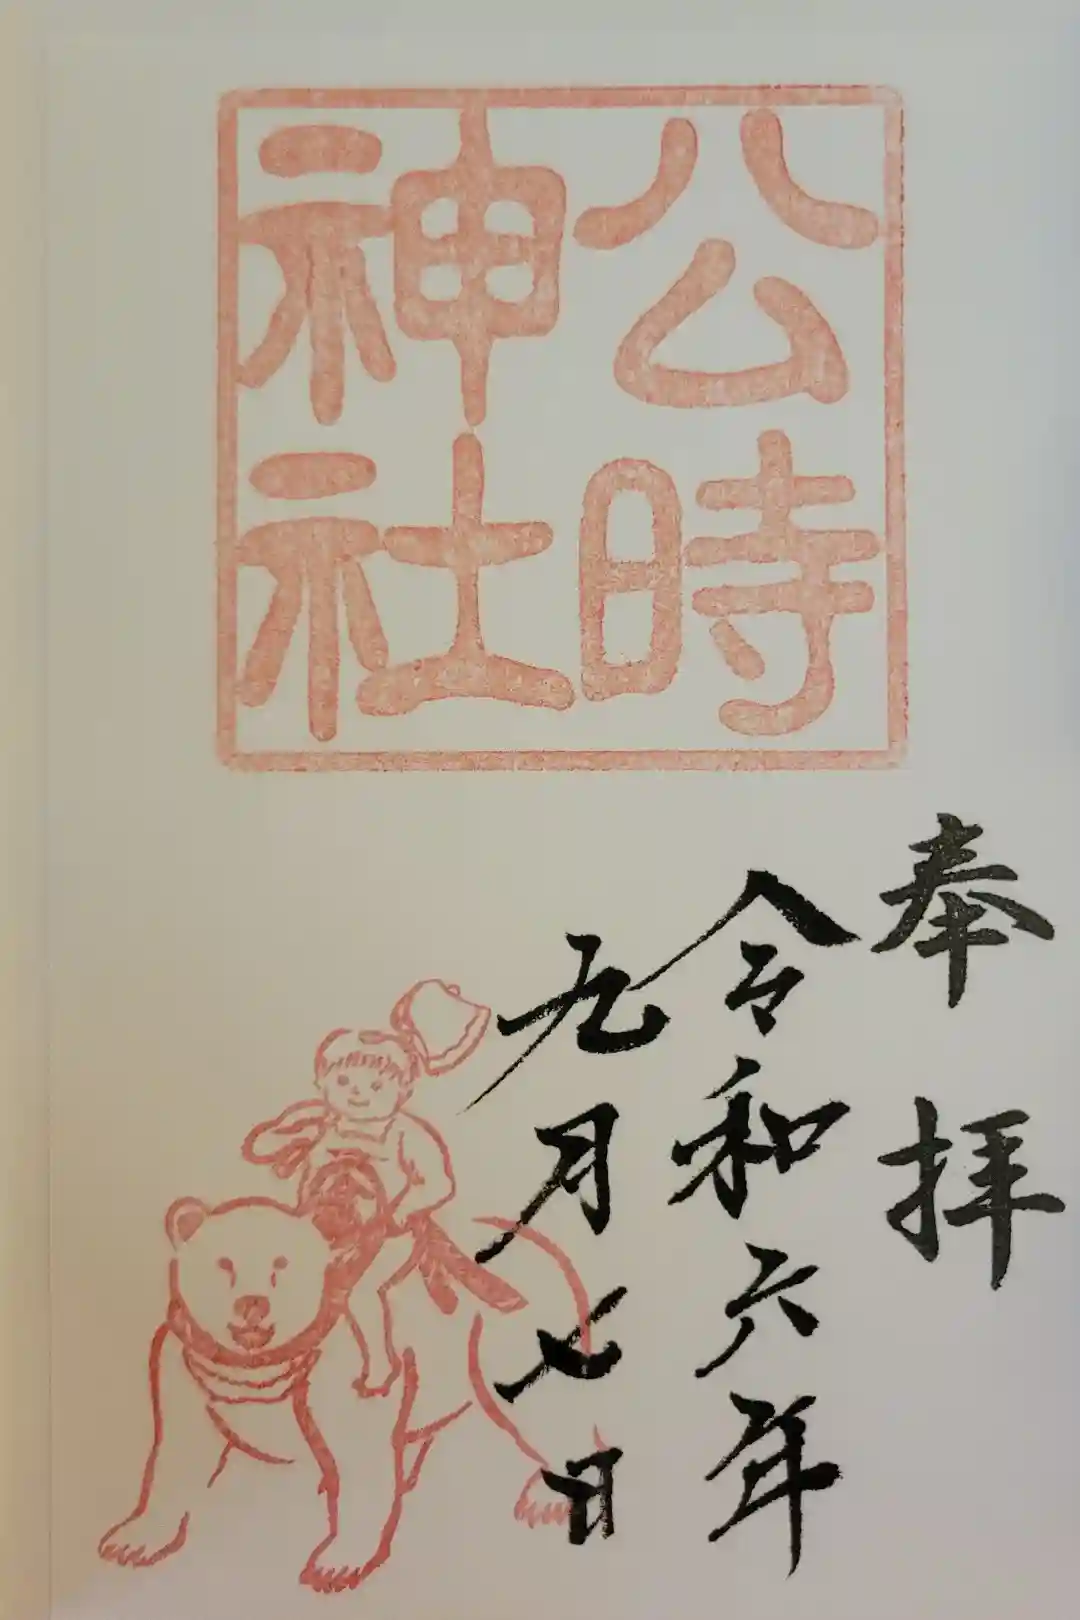 公時
神社
奉拝
令和六年
九月七日